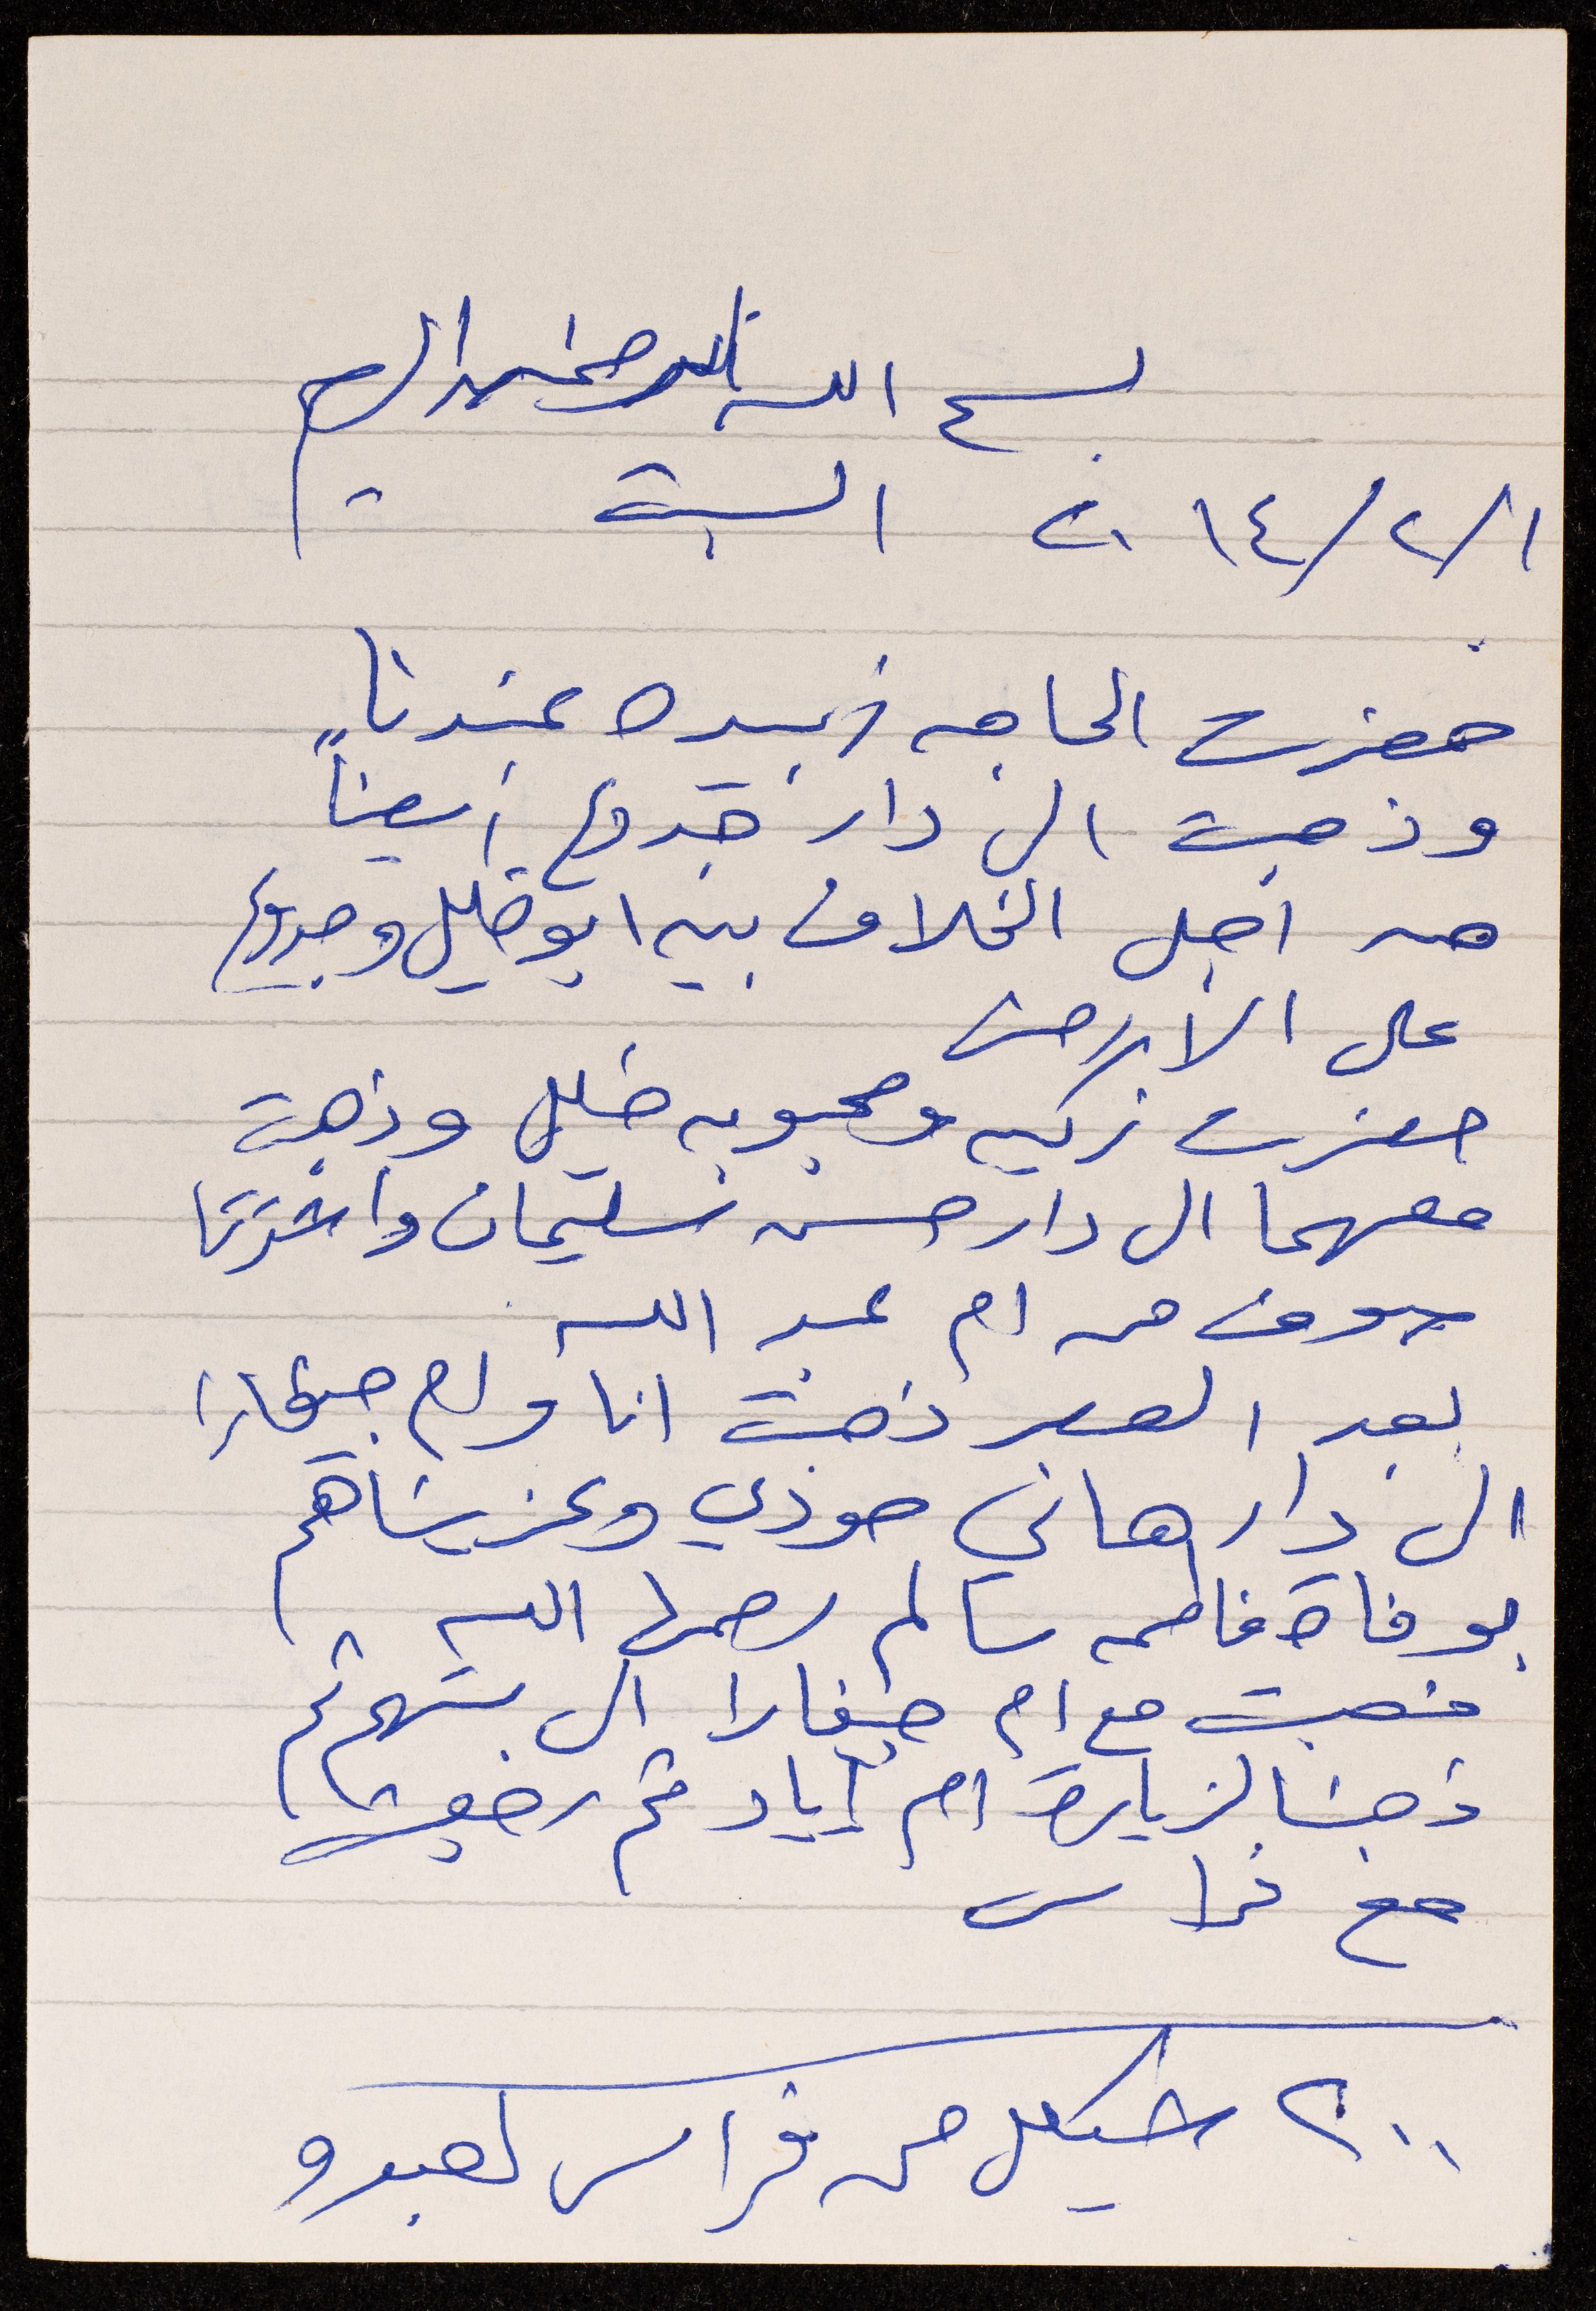 بسم الله الرحمن الرحيم
١/٢/٢٠١٤ السبت
حضرت الحاجه زبيده عندنا
وذهبت الى دار جدوع أيضاً
من اجل الخلاف بين ابو خليل وجدوع
على الارض
حضرت زكيه ومحبوبه خليل وذهبت
معهما الى دار حسن سليمان واشترتا
من ام عبد الله
بعد العصر ذهبت انا وام جيفارا
الى دار هاني حوذي وعزيناهم
بوفاة فاطمه سالم رحمها الله
فذهبت مع ام جيفارا الى بيتهم ثم
ذهبنا لزيارة ام اياد ثم رجعت
مع فراس
٢٠٠ شيكل من فراس لعبدو